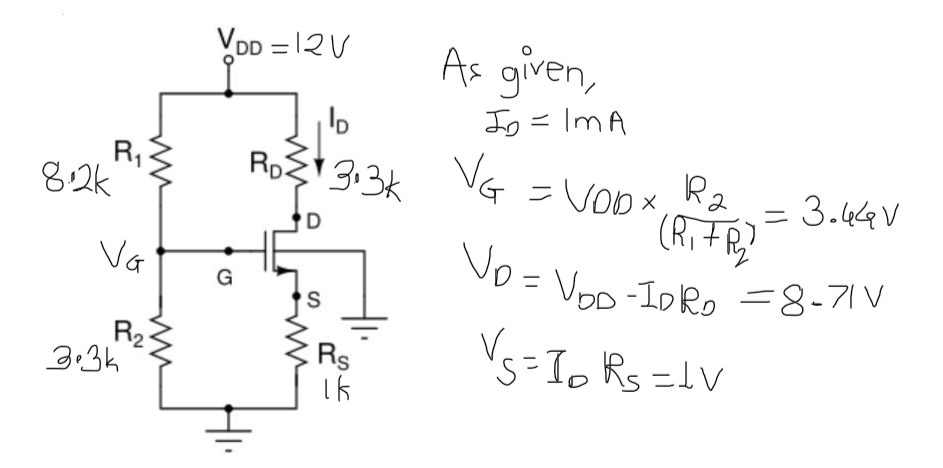 V_DD = 12V
I_D
R_1
8.2k
R_D
3.3k
D
V_G
G
S
R_2
3.3k
R_S
1k
As given,
I_D = 1mA
V_G = V_DD × R_2 / (R_1 + R_2) = 3.44V
V_D = V_DD - I_D R_D = 8.71V
V_S = I_D R_S = 1V